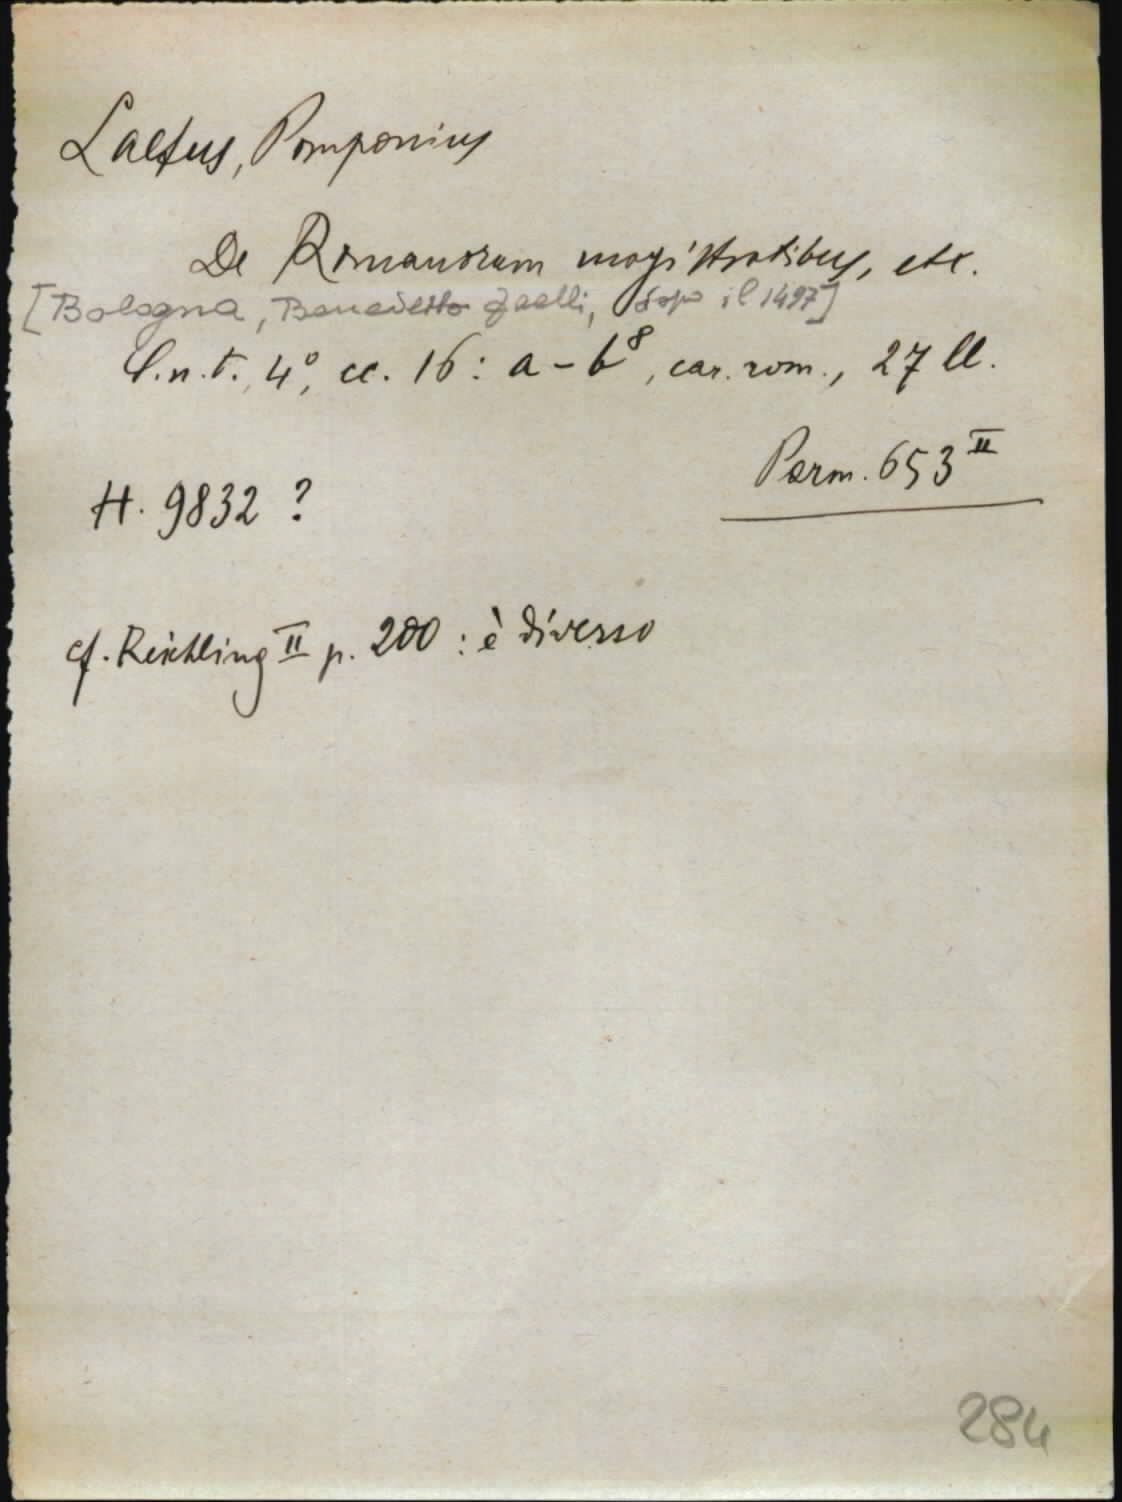 Laetus, Pomponius
De Romanorum magistratibus, etc.
[Bologna, Benedetto Faelli, dopo il 1497]
S.n.t., 4°, cc. 16: a-b⁸, car. rom., 27 ll.
Parm. 653 II
H. 9832 ?
cf. Reichling II p. 200 : è diverso
284